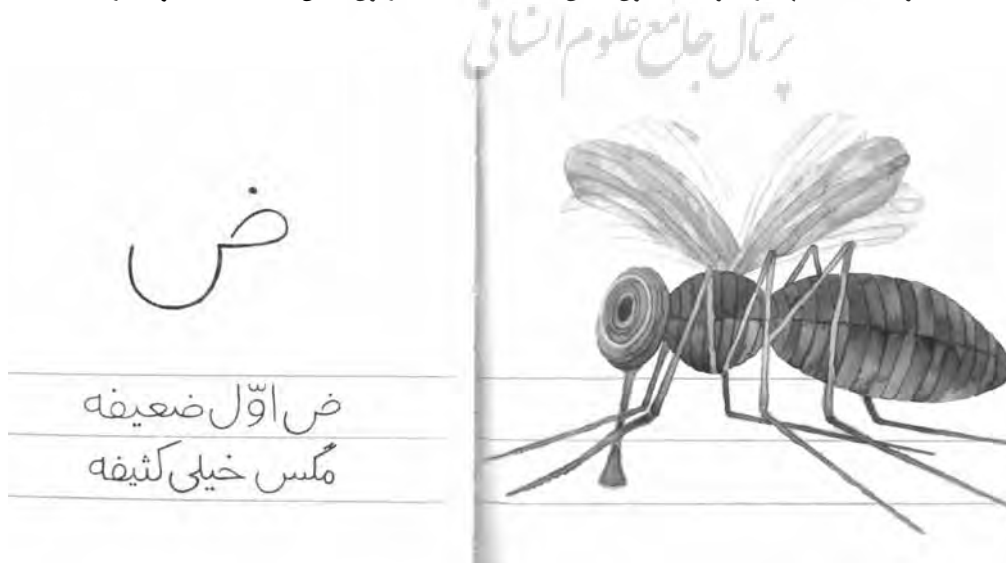 پرتال جامع علوم انسانی
ض
ض اوّل ضعیفه
مگس خیلی کثیفه